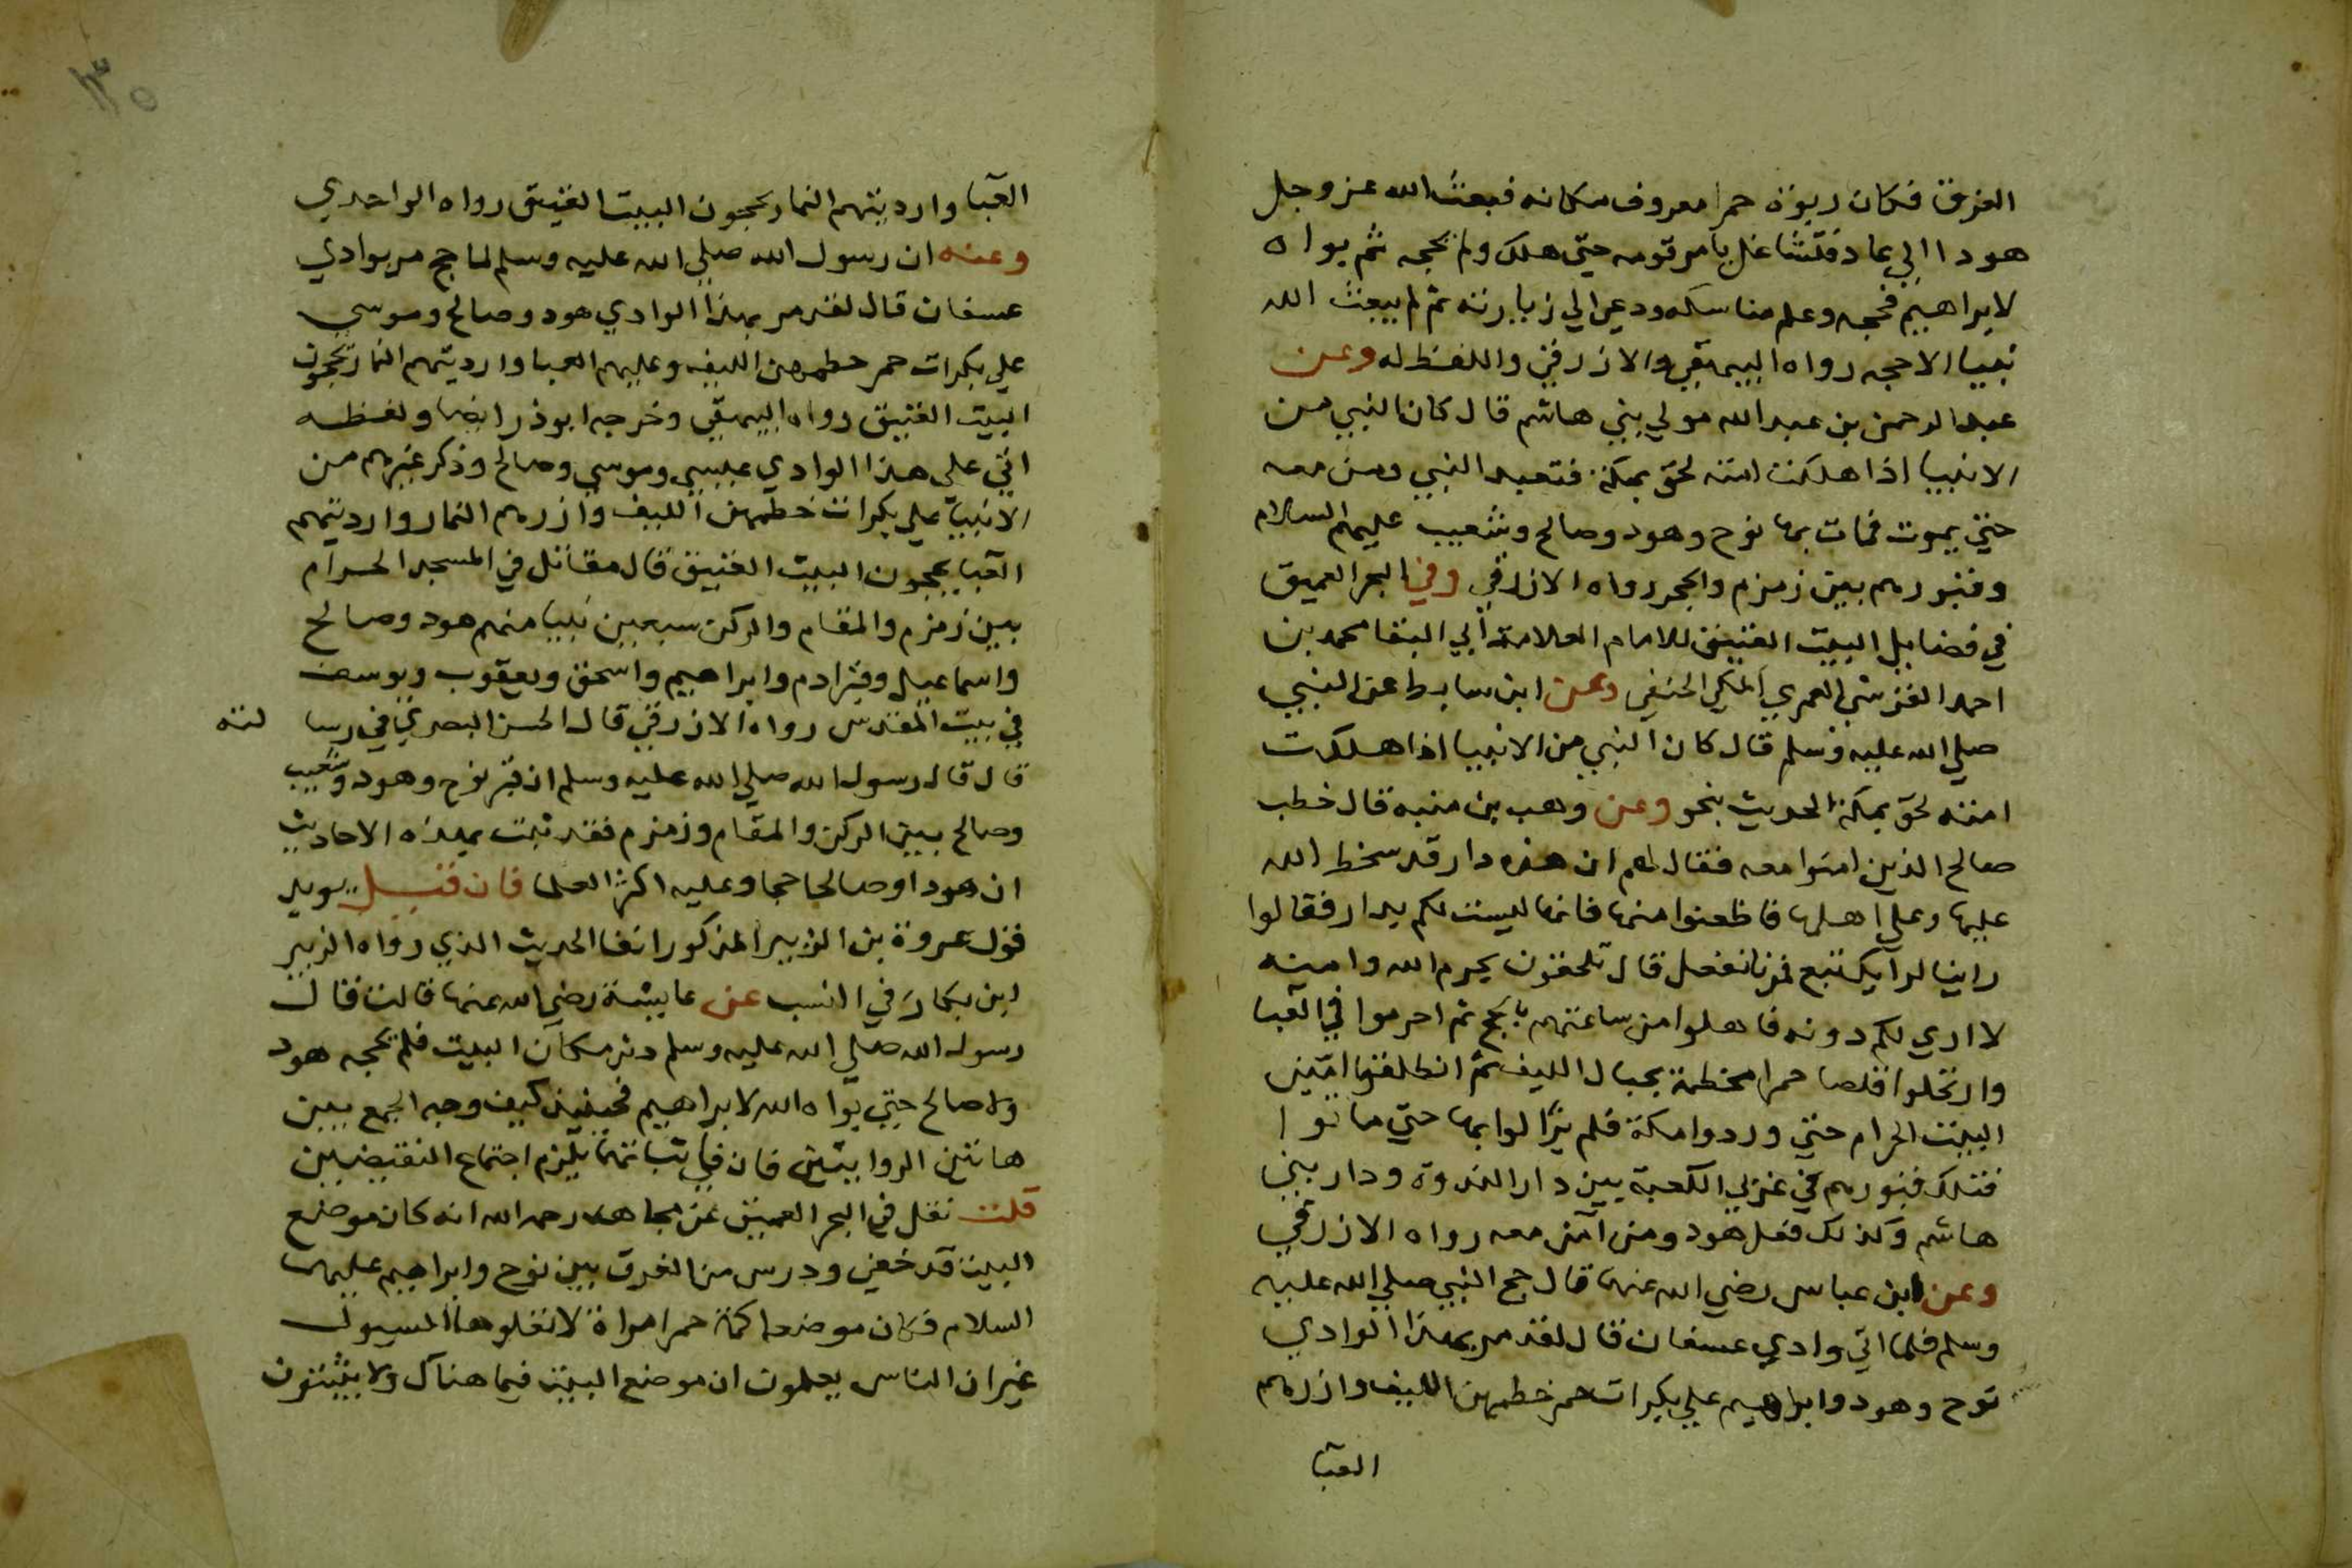 الغرق فكان ربوة حمرا معروف مكانه فبعث الله عز وجل
هودا الي عاد فتشاغل بامر قومه حتي هلك ولم يحجه ثم بواه
لابراهيم فحجه وعلم مناسكه ودعي الي زيارته ثم لم يبعث الله
نبيا الا حجه رواه البيهقي والازرقي واللفظ له وعن
عبد الرحمن بن عبد الله مولي بني هاشم قال كان النبي من
الانبيا اذا هلكت امته لحق بمكة فتعبد النبي ومن معه
حتي يموت فمات بها نوح وهود وصالح وشعيب عليهم السلام
وقبورهم بين زمزم والحجر رواه الازرقي وفي البحر العميق
في فضايل البيت العتيق للامام العلامة ابي البقا محمد بن
احمد القرشي العمري المكي الحنفي وعن ابن سابط عن النبي
صلي الله عليه وسلم قال كان النبي من الانبيا اذا هلكت
امته لحق بمكة الحديث بنحو وعن وهب بن منبه قال خطب
صالح الذين امنوا معه فقال لهم ان هذه دار قد سخط الله
عليها وعلي اهلها فاظعنوا منها فانها ليست لكم بدار فقالوا
راينا لرايك تبع فمرنا نفعل قال تلحقون بحرم الله وامنه
لا اري لكم دونه فاهلوا من ساعتهم بالحج ثم احرموا في العبا
وارتحلوا قلصا حمرا مخطمة بحبال الليف ثم انطلقوا امين
البيت الحرام حتي وردوا مكة فلم يزالوا بها حتي ماتوا
فتلك قبورهم في غربي الكعبة بين دار الندوة ودار بني
هاشم وكذلك فعل هود ومن آمن معه رواه الازرقي
وعن ابن عباس رضي الله عنهما قال حج النبي صلي الله عليه
وسلم فلما اتي وادي عسفان قال لقد مر بهذا الوادي
نوح وهود وابراهيم علي بكرات حمر خطمهن الليف وازرهم
العبا
١٣٥
العبا وارديتهم النمار يحجون البيت العتيق رواه الواحدي
وعنه ان رسول الله صلي الله عليه وسلم لما حج مر بوادي
عسفان قال لقد مر بهذا الوادي هود وصالح وموسي
علي بكرات حمر خطمهن الليف وعليهم العبا وارديتهم النمار يحجون
البيت العتيق رواه البيهقي وخرجه ابو ذر ايضا ولفظه
اتي علي هذا الوادي عيسي وموسي وصالح وذكر غيرهم من
الانبيا علي بكرات خطمهن الليف وازرهم النمار وارديتهم
العبا يحجون البيت العتيق قال مقاتل في المسجد الحرام
بين زمزم والمقام والركن سبعين نبيا منهم هود وصالح
واسماعيل وقبر ادم وابراهيم واسحق ويعقوب ويوسف
في بيت المقدس رواه الازرقي قال الحسن البصري في رسا لته
قال قال رسول الله صلي الله عليه وسلم ان قبر نوح وهود وشعيب
وصالح بين الركن والمقام وزمزم فقد ثبت بهذه الاحاديث
ان هودا وصالحا حجا وعليه اكثر العلما فان قيل يويد
قول عروة بن الزبير المذكور انفا الحديث الذي رواه الزبير
ابن بكار في النسب عن عايشة رضي الله عنها قالت قال
رسول الله صلي الله عليه وسلم دثر مكان البيت فلم يحجه هود
ولا صالح حتي بواه الله لابراهيم فحينيذ كيف وجه الجمع بين
هاتين الروايتين فان في اثباتهما يلزم اجتماع النقيضين
قلت نقل في البحر العميق عن مجاهد رحمه الله انه كان موضع
البيت قد خفي ودرس من الغرق بين نوح وابراهيم عليهما
السلام فكان موضعه اكمة حمرا مدورة لا تعلوها السيول
غير ان الناس يعلمون ان موضع البيت فيما هنالك ولا يثبتون